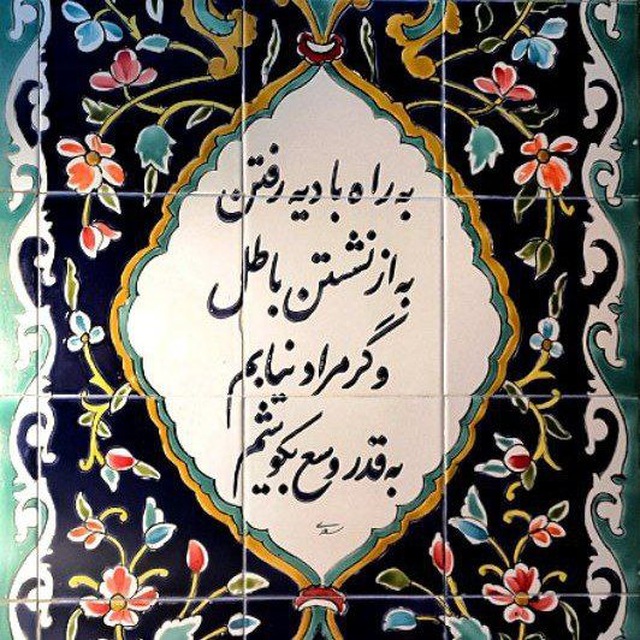 به راه بادیه رفتن
به از نشستن باطل
وگر مراد نیابم
به قدر وسع بکوشم